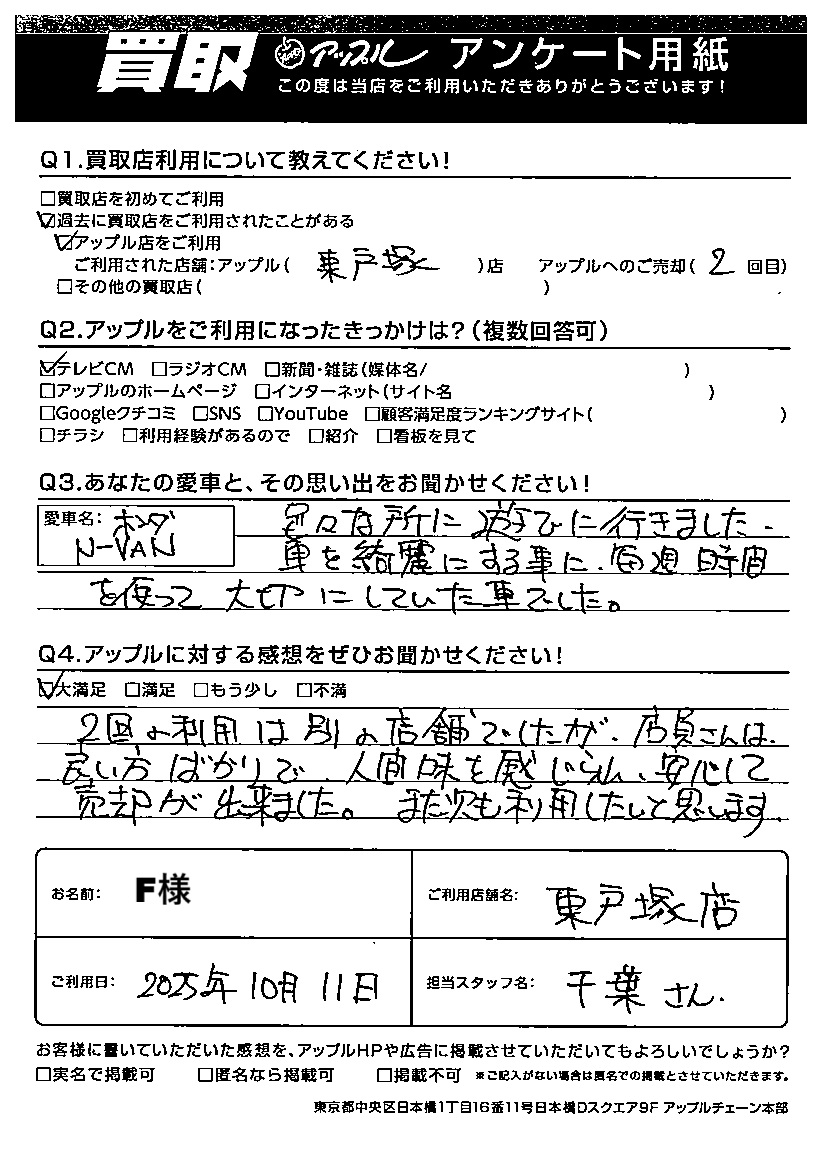 買取 アップル アンケート用紙
この度は当店をご利用いただきありがとうございます!
Q1.買取店利用について教えてください!
□買取店を初めてご利用
☑過去に買取店をご利用されたことがある
☑アップル店をご利用
ご利用された店舗:アップル( 東戸塚 )店 アップルへのご売却( 2 回目)
□その他の買取店( )
Q2.アップルをご利用になったきっかけは?(複数回答可)
☑テレビCM □ラジオCM □新聞・雑誌(媒体名/ )
□アップルのホームページ □インターネット(サイト名 )
□Googleクチコミ □SNS □YouTube □顧客満足度ランキングサイト( )
□チラシ □利用経験があるので □紹介 □看板を見て
Q3.あなたの愛車と、その思い出をお聞かせください!
愛車名: ホンダ
N-VAN
色々な所に遊びに行きました。
車を綺麗にする事に、毎週時間
を使って大切にしていた車でした。
Q4.アップルに対する感想をぜひお聞かせください!
☑大満足 □満足 □もう少し □不満
2回の利用は別の店舗でしたが、店員さんは、
良い方ばかりで、人間味を感じられ、安心して
売却が出来ました。また次も利用したいと思します
お名前: F様
ご利用店舗名: 東戸塚店
ご利用日: 2025年10月11日
担当スタッフ名: 千葉さん.
お客様に書いていただいた感想を、アップルHPや広告に掲載させていただいてもよろしいでしょうか?
□実名で掲載可 □匿名なら掲載可 □掲載不可 ※ご記入がない場合は匿名での掲載とさせていただきます。
東京都中央区日本橋1丁目16番11号日本橋Dスクエア9F アップルチェーン本部